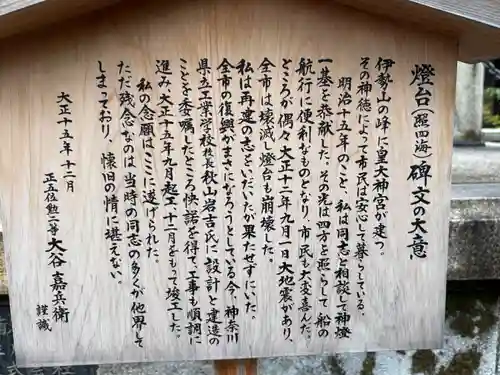 燈台(照四海)碑文の大意
伊勢山の峰に皇大神宮が建つ。
その神徳によって市民は安心して暮らしている。
明治十五年のこと、私は同志と相談して神燈
一基を奉献した。その光は四方を照らして船の
航行に便利なものとなり、市民も大変喜んだ。
ところが偶々大正十二年九月一日大地震があり、
全市は壊滅し燈台も崩壊した。
私は再建の志をいだいたが果たせずにいた。
全市の復興がまさになろうとしている今、神奈川
県立工業学校校長秋山岩吉氏に設計と建造の
ことを委嘱したところ快諾を得て、工事も順調に
進み、大正十五年九月起工、十二月をもって竣工した。
私の念願はここに遂げられた。
ただ残念なのは当時の同志の多くが他界して
しまっており、懐旧の情に堪えない。
大正十五年十二月
正五位勲二等 大谷嘉兵衛 謹識